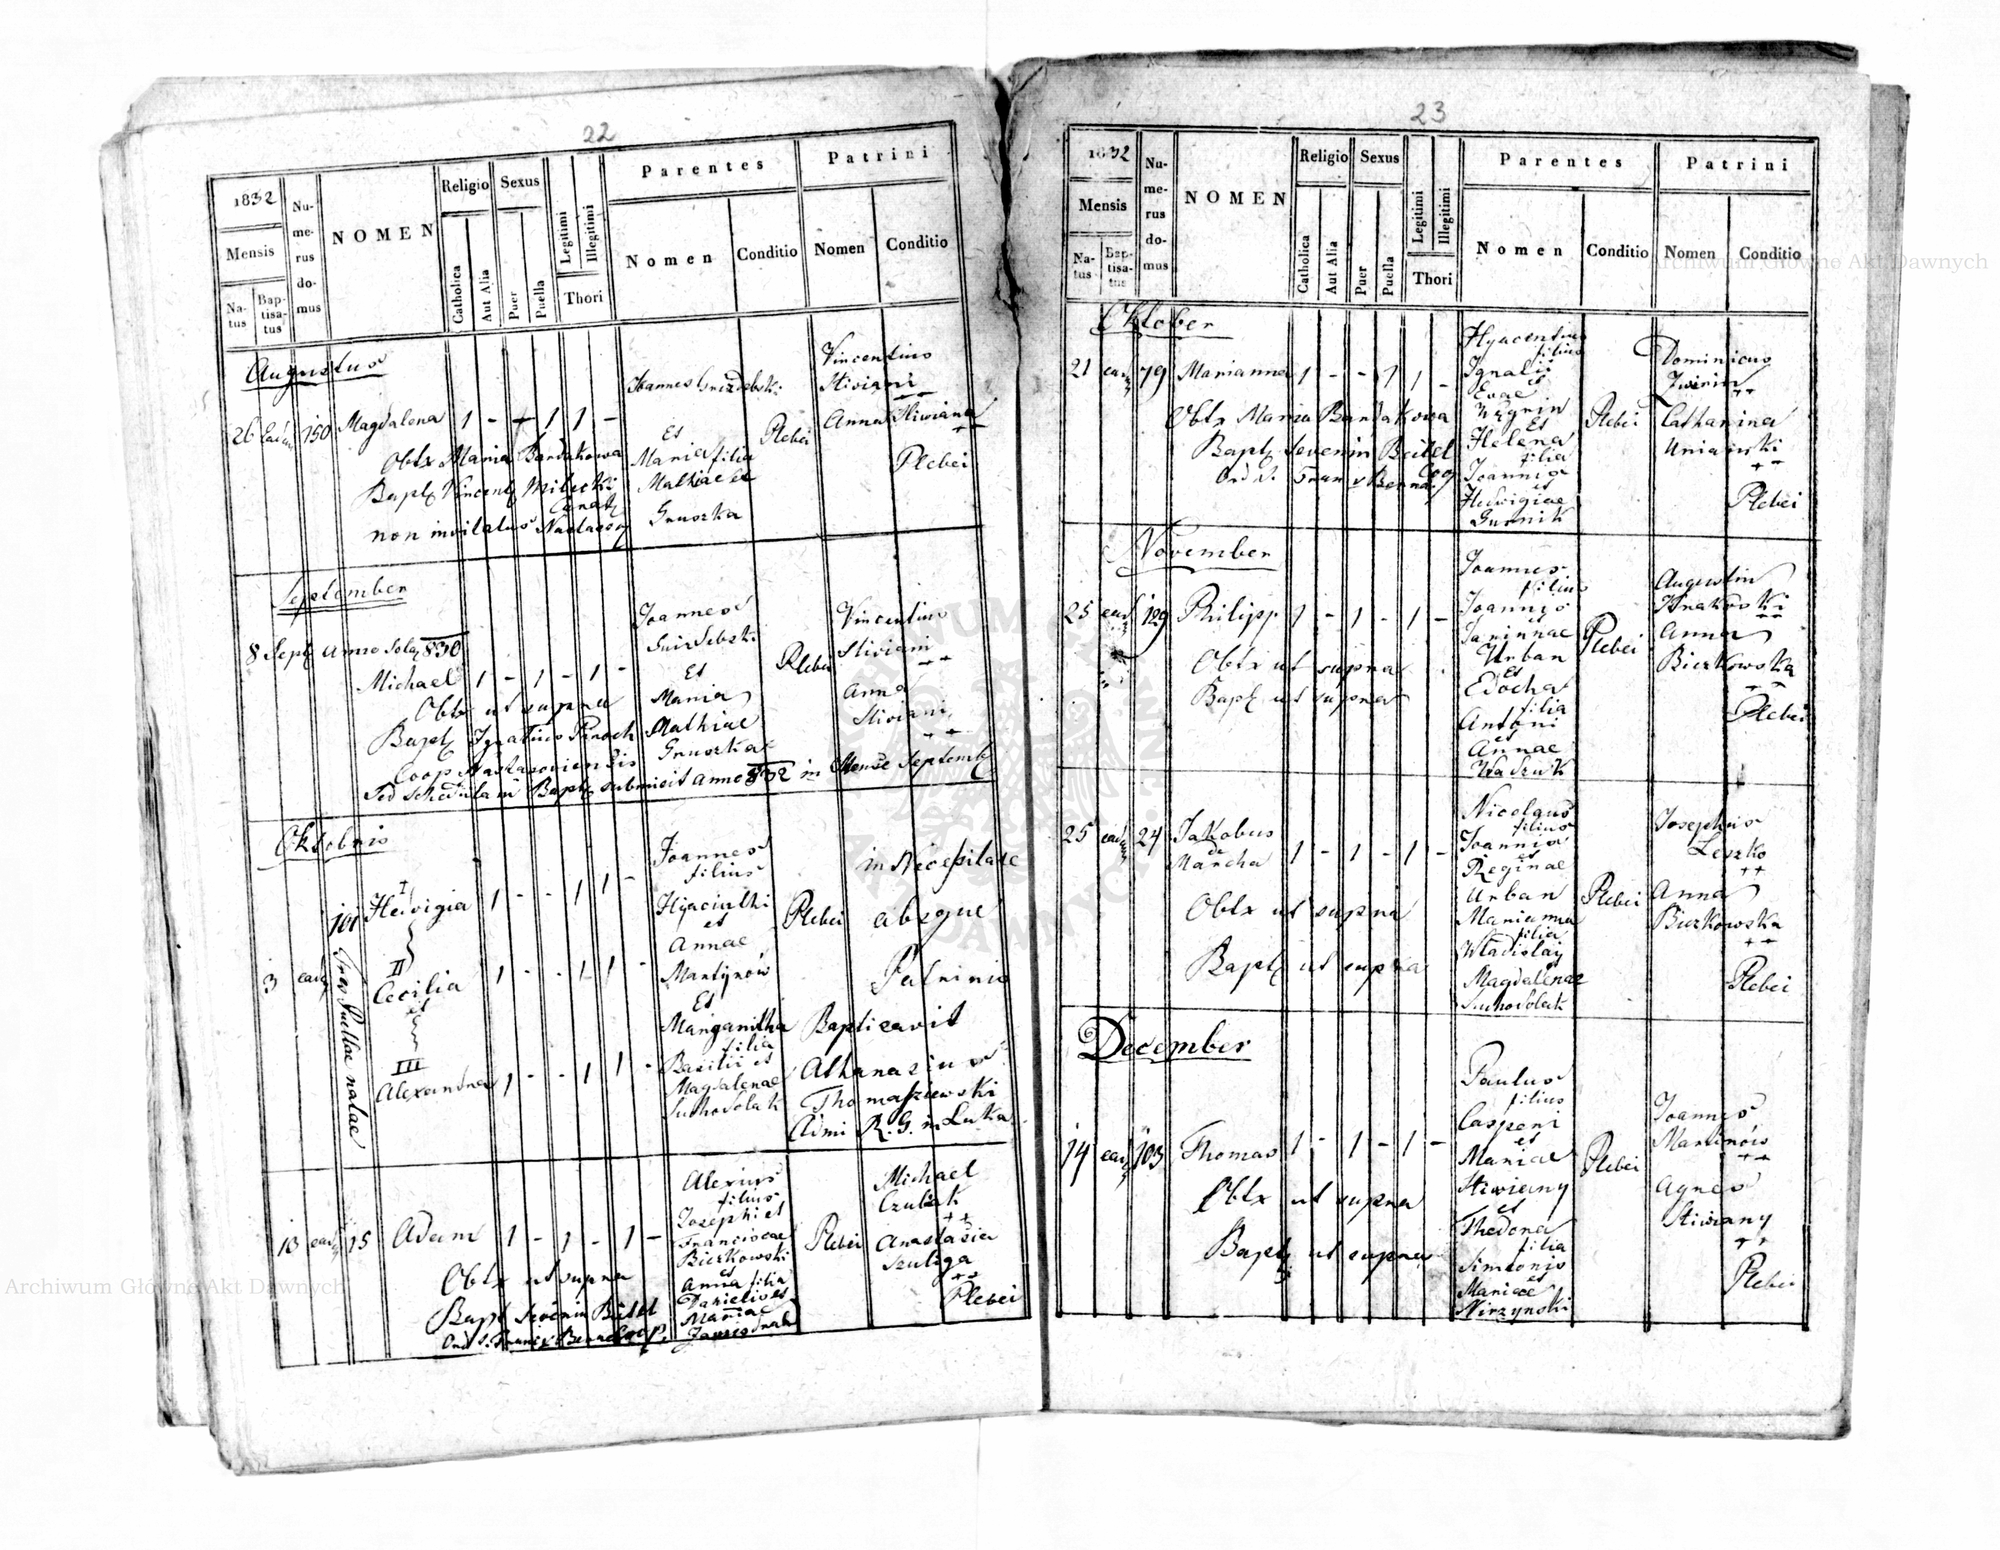 22
1832
Mensis
Natus
Baptisatus
Numerus domus
NOMEN
Religio
Catholica
Aut Alia
Sexus
Puer
Puella
Legitimi
Illegitimi
Thori
Parentes
Nomen
Conditio
Patrini
Nomen
Conditio
Augustus
26 150 Magdalena 1 - + 1 1 -
Obtx Maria Bardakowa
Bapt Vincent
non invitatus
Joannes
Et
Maria filia
Mathiae et
Gruszka
Plebei
Vincentius
Stiviani
++
Anna Stiviana
++
Plebei
September
8 Sept Anno 830
Michael 1 - 1 - 1 -
Obtx ut supra
Bapt Ignatius Paroch
Coop Nastasoviensis
sed schedulam Bapt submisit anno 832 in Mense Septemb
Joannes
Et
Maria
Mathiae
Gruszka
Plebei
Vincentius
Stiviani
++
Anna
Stiviani
++
Oktobris
3 ead 101
Tres Puellae natae
I
Hedvigia 1 - - 1 1 -
II
Cecilia 1 - - 1 1 -
et
III
Alexandra 1 - - 1 1 -
Joannes
filius
Hyacinthi
et
Annae
Martynów
Et
Margaritha
filia
Basilii et
Magdalenae
Suchodolak
Plebei
in Necessitate
absque
Patrinis
Baptizavit
Athanasius
Thomaszewski
Admi R. G. in Luka
13 ead 15 Adam 1 - 1 - 1 -
Obtx ut supra
Bapt Severin Beitel
Ord S. Franc x Berna Coop.
Alexius
filius
Josephi et
Franciscae
Bieżkowski
et
Anna filia
Danielis et
Mariae
Plebei
Michael
Czubak
++
Anastasia
Szuliga
++
Plebei
23
1832
Mensis
Natus
Baptisatus
Numerus domus
NOMEN
Religio
Catholica
Aut Alia
Sexus
Puer
Puella
Legitimi
Illegitimi
Thori
Parentes
Nomen
Conditio
Patrini
Nomen
Conditio
Oktober
21 ead 79 Marianna 1 - - 1 1 -
Obtx Maria Bardakowa
Bapt Severin Beitel
Ord S. Fran x Berna. Coop
Hyacentius
filius
Ignatii
et
Evae
Węgrin
Et
Helena
filia
Joannis
et
Hedwigiae
Gurnik
Plebei
Dominicus
++
Catharina
Uniawski
++
Plebei
November
25 ead 129 Philipp 1 - 1 - 1 -
Obtx ut supra
Bapt ut supra
Joannes
filius
Joannis
et
Urban
et
Edocha
filia
Antoni
et
Annae
Waszuk
Plebei
Augustin
Krakowski
++
Anna
Bieżkowska
++
Plebei
25 ead 24 Jakobus
de
Marcha 1 - 1 - 1 -
Obtx ut supra
Bapt ut supra
Nicolaus
filius
Joannis
et
Reginae
Urban
Marianna
filia
Wladislay
Magdalenae
Suchodolak
Plebei
Josephus
Leszko
++
Anna
Bieżkowska
++
Plebei
December
14 ead 103 Thomas 1 - 1 - 1 -
Obtx ut supra
Bapt ut supra
Paulus
filius
Casperi
et
Mariae
Stiviany
et
Thedora
filia
Simeonis
et
Mariae
Nirzynski
Plebei
Joannes
Martinów
++
Agnes
Stiviany
++
Plebei
Archiwum Główne Akt Dawnych
Archiwum Główne Akt Dawnych
ARCHIWUM GŁÓWNE AKT DAWNYCH